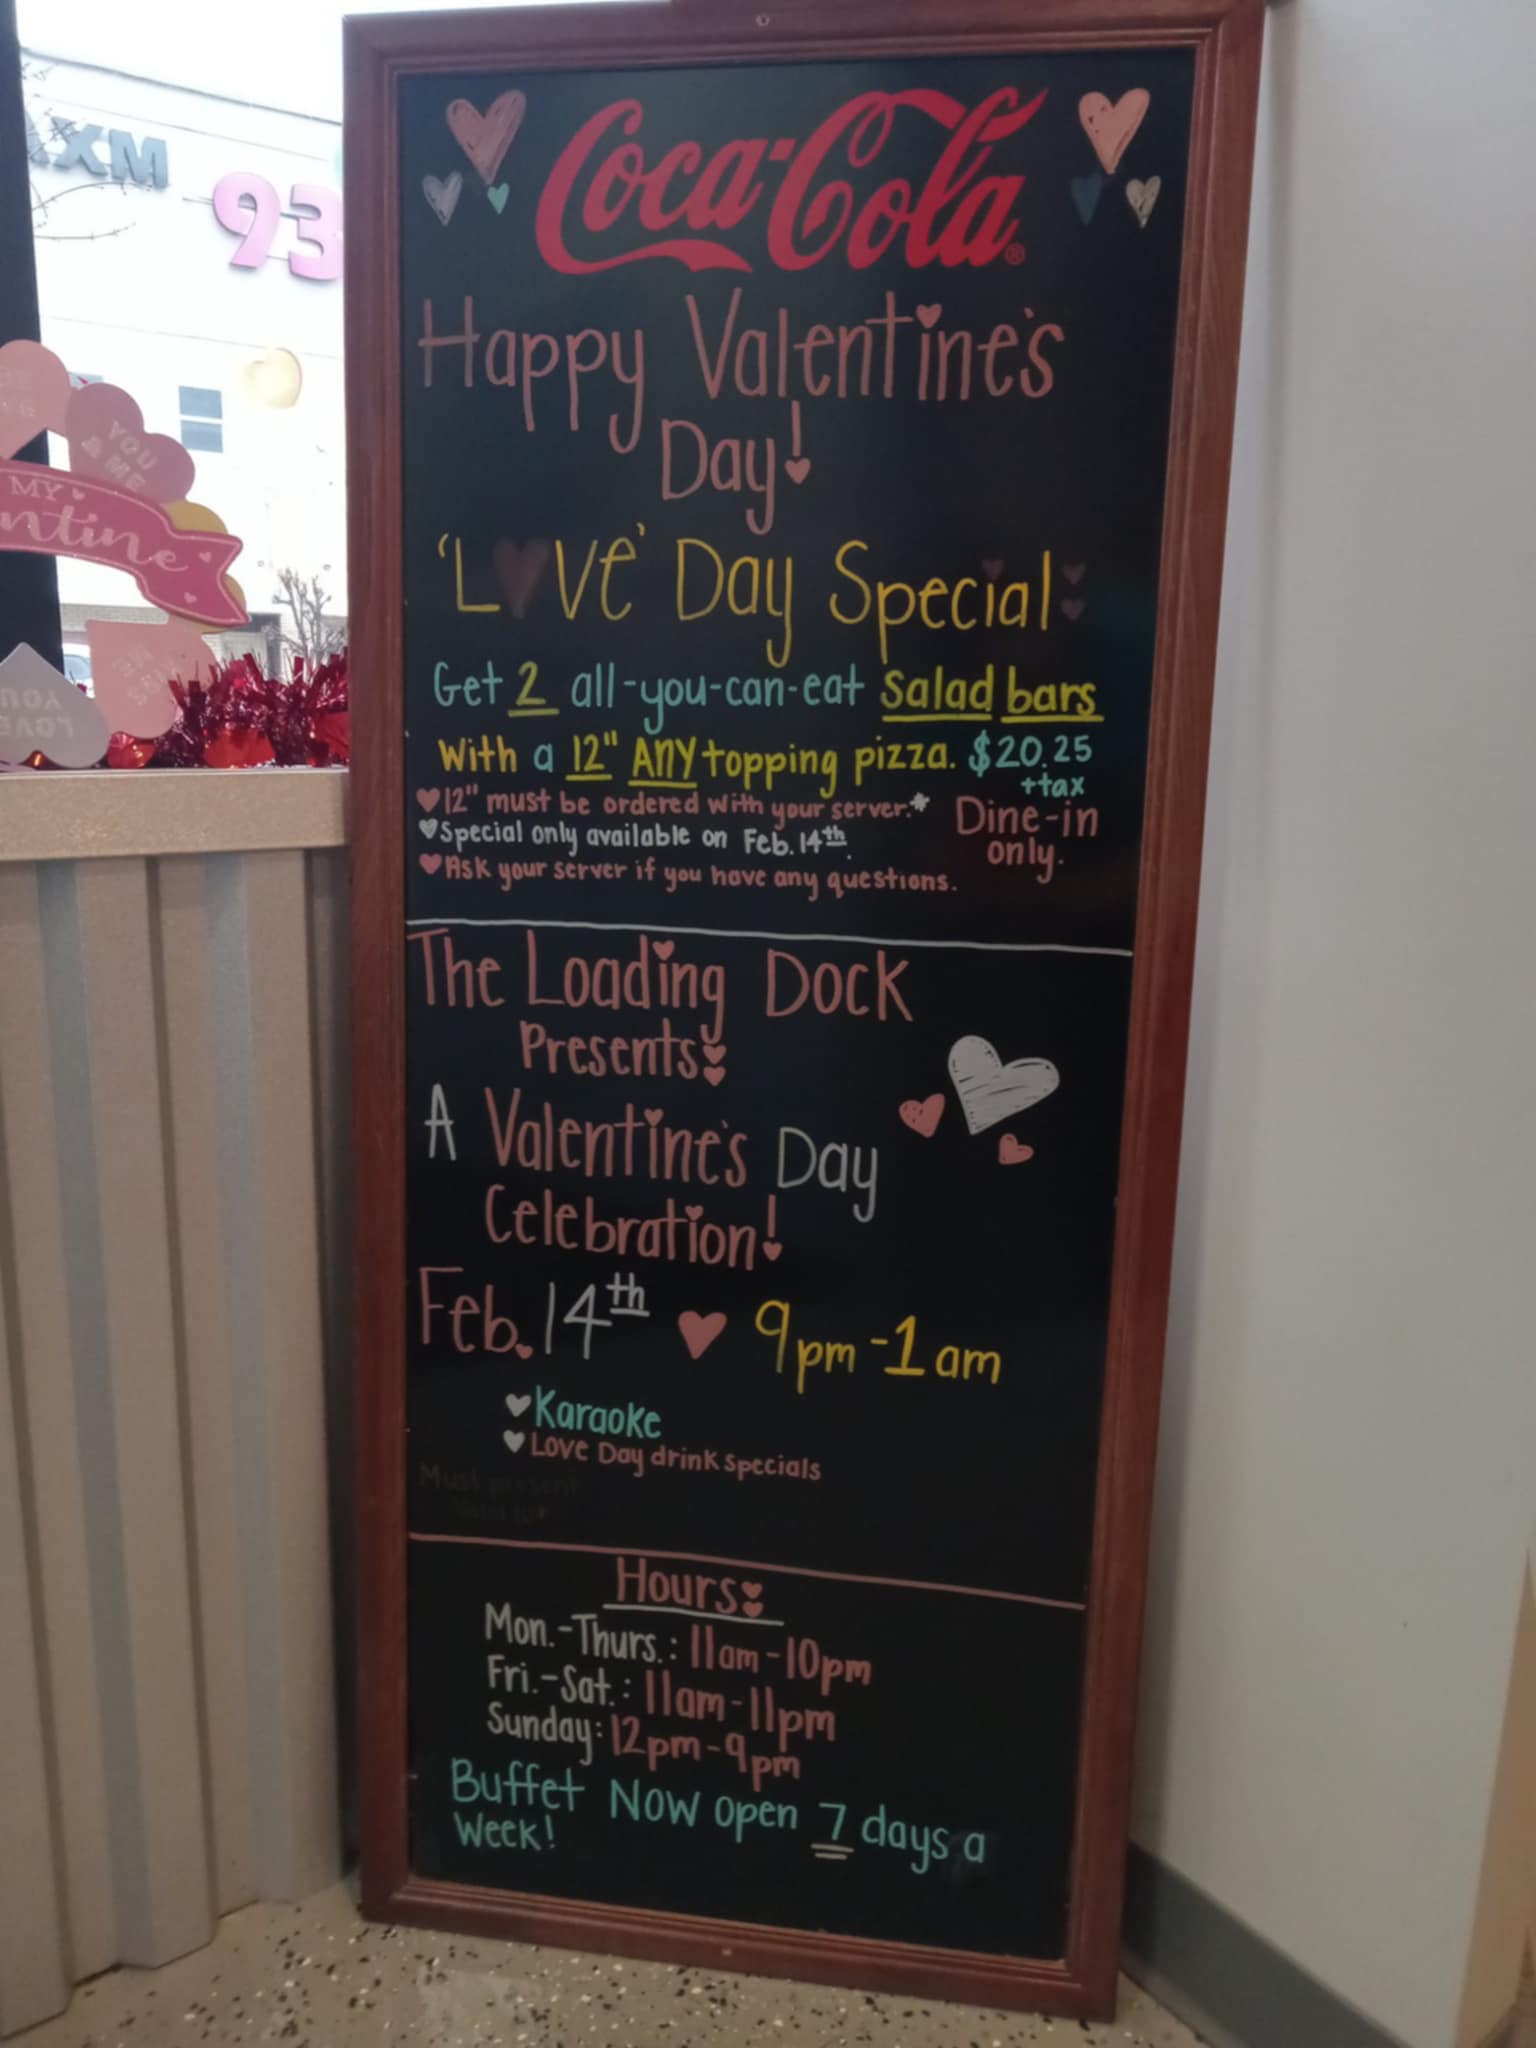 AXM
93
YOU
& ME
MY
ntine
LOVE
YOU
Coca-Cola®
Happy Valentine's
Day!
'L♥ve' Day Special
Get 2 all-you-can-eat salad bars
with a 12" ANY topping pizza. $20.25
+tax
♥12" must be ordered with your server.*
♥Special only available on Feb. 14th.
♥Ask your server if you have any questions.
Dine-in
only.
The Loading Dock
Presents:
A Valentine's Day
Celebration!
Feb. 14th ♥ 9pm-1am
♥Karaoke
♥Love Day drink specials
Must present
Valid ID*
Hours:
Mon.-Thurs.: 11am-10pm
Fri.-Sat.: 11am-11pm
Sunday: 12pm-9pm
Buffet Now open 7 days a
Week!